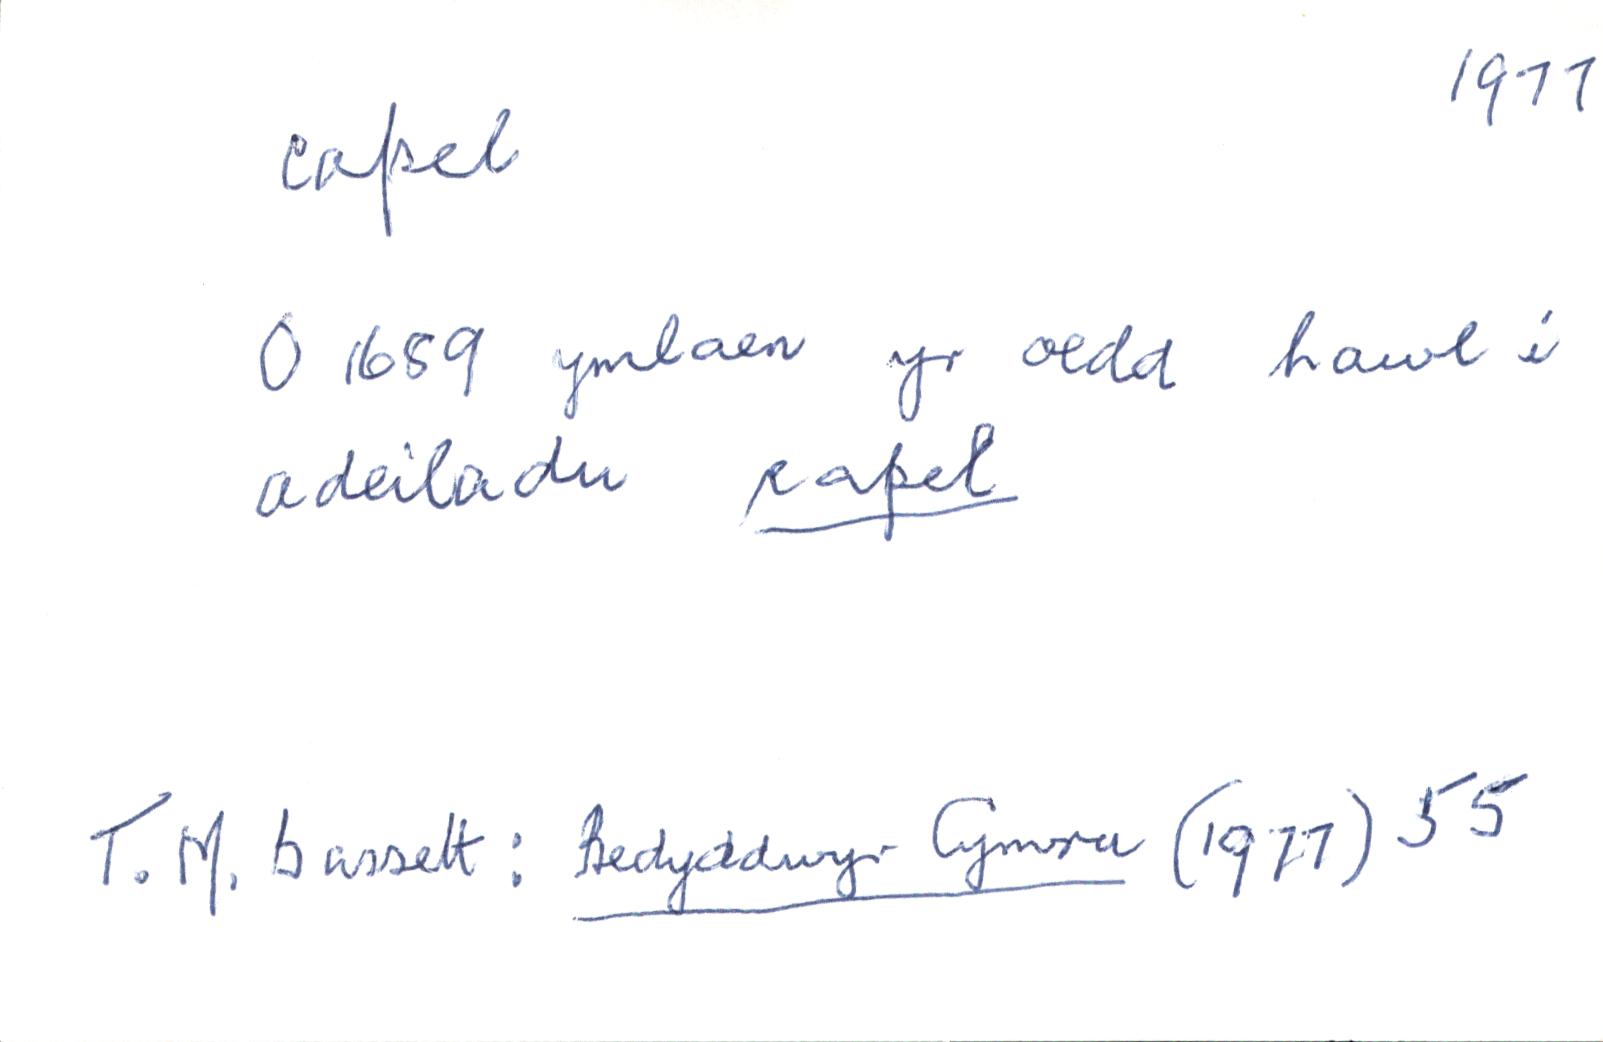 1977
capel
O 1689 ymlaen yr oedd hawl i
adeiladu capel
T. M. Bassett: Bedyddwyr Cymru (1977) 55